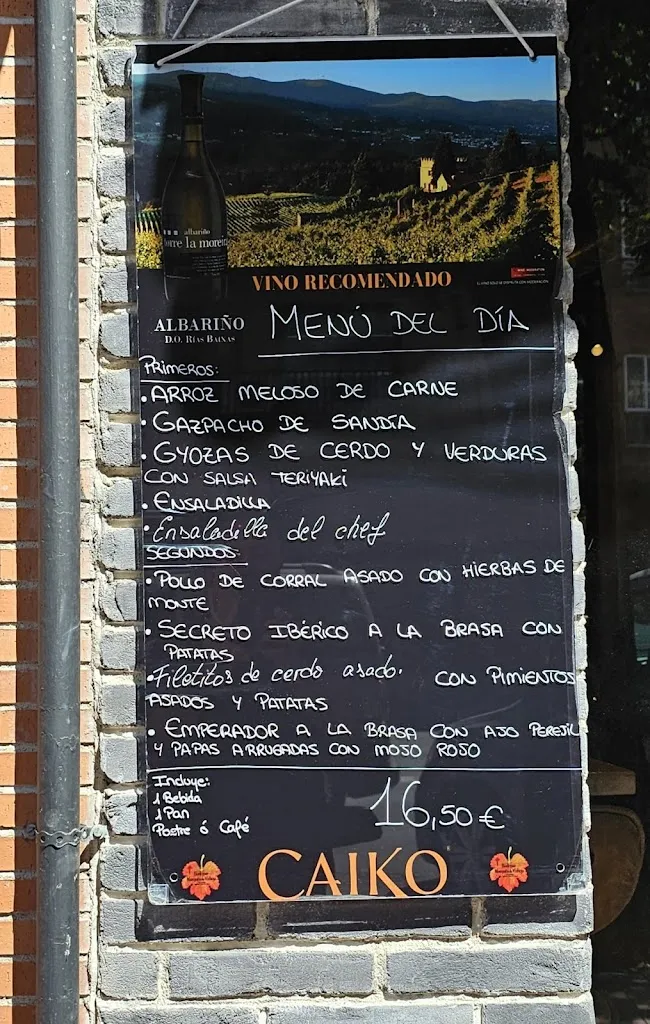 albariño
VINO RECOMENDADO
ALBARIÑO
D.O. RÍAS BAIXAS
MENÚ DEL DÍA
PRIMEROS:
• ARROZ MELOSO DE CARNE
• GAZPACHO DE SANDÍA
• GYOZAS DE CERDO Y VERDURAS
CON SALSA TERIYAKI
• ENSALADILLA
• Ensaladilla del chef
SEGUNDOS:
• POLLO DE CORRAL ASADO CON HIERBAS DE
MONTE
• SECRETO IBÉRICO A LA BRASA CON
PATATAS
• Filetitos de cerdo asado. CON PIMIENTOS
ASADOS Y PATATAS
• EMPERADOR A LA BRASA CON AJO PEREJIL
Y PAPAS ARRUGADAS CON MOJO ROJO
Incluye:
1 Bebida
1 Pan
Postre ó Café
16,50 €
CAIKO